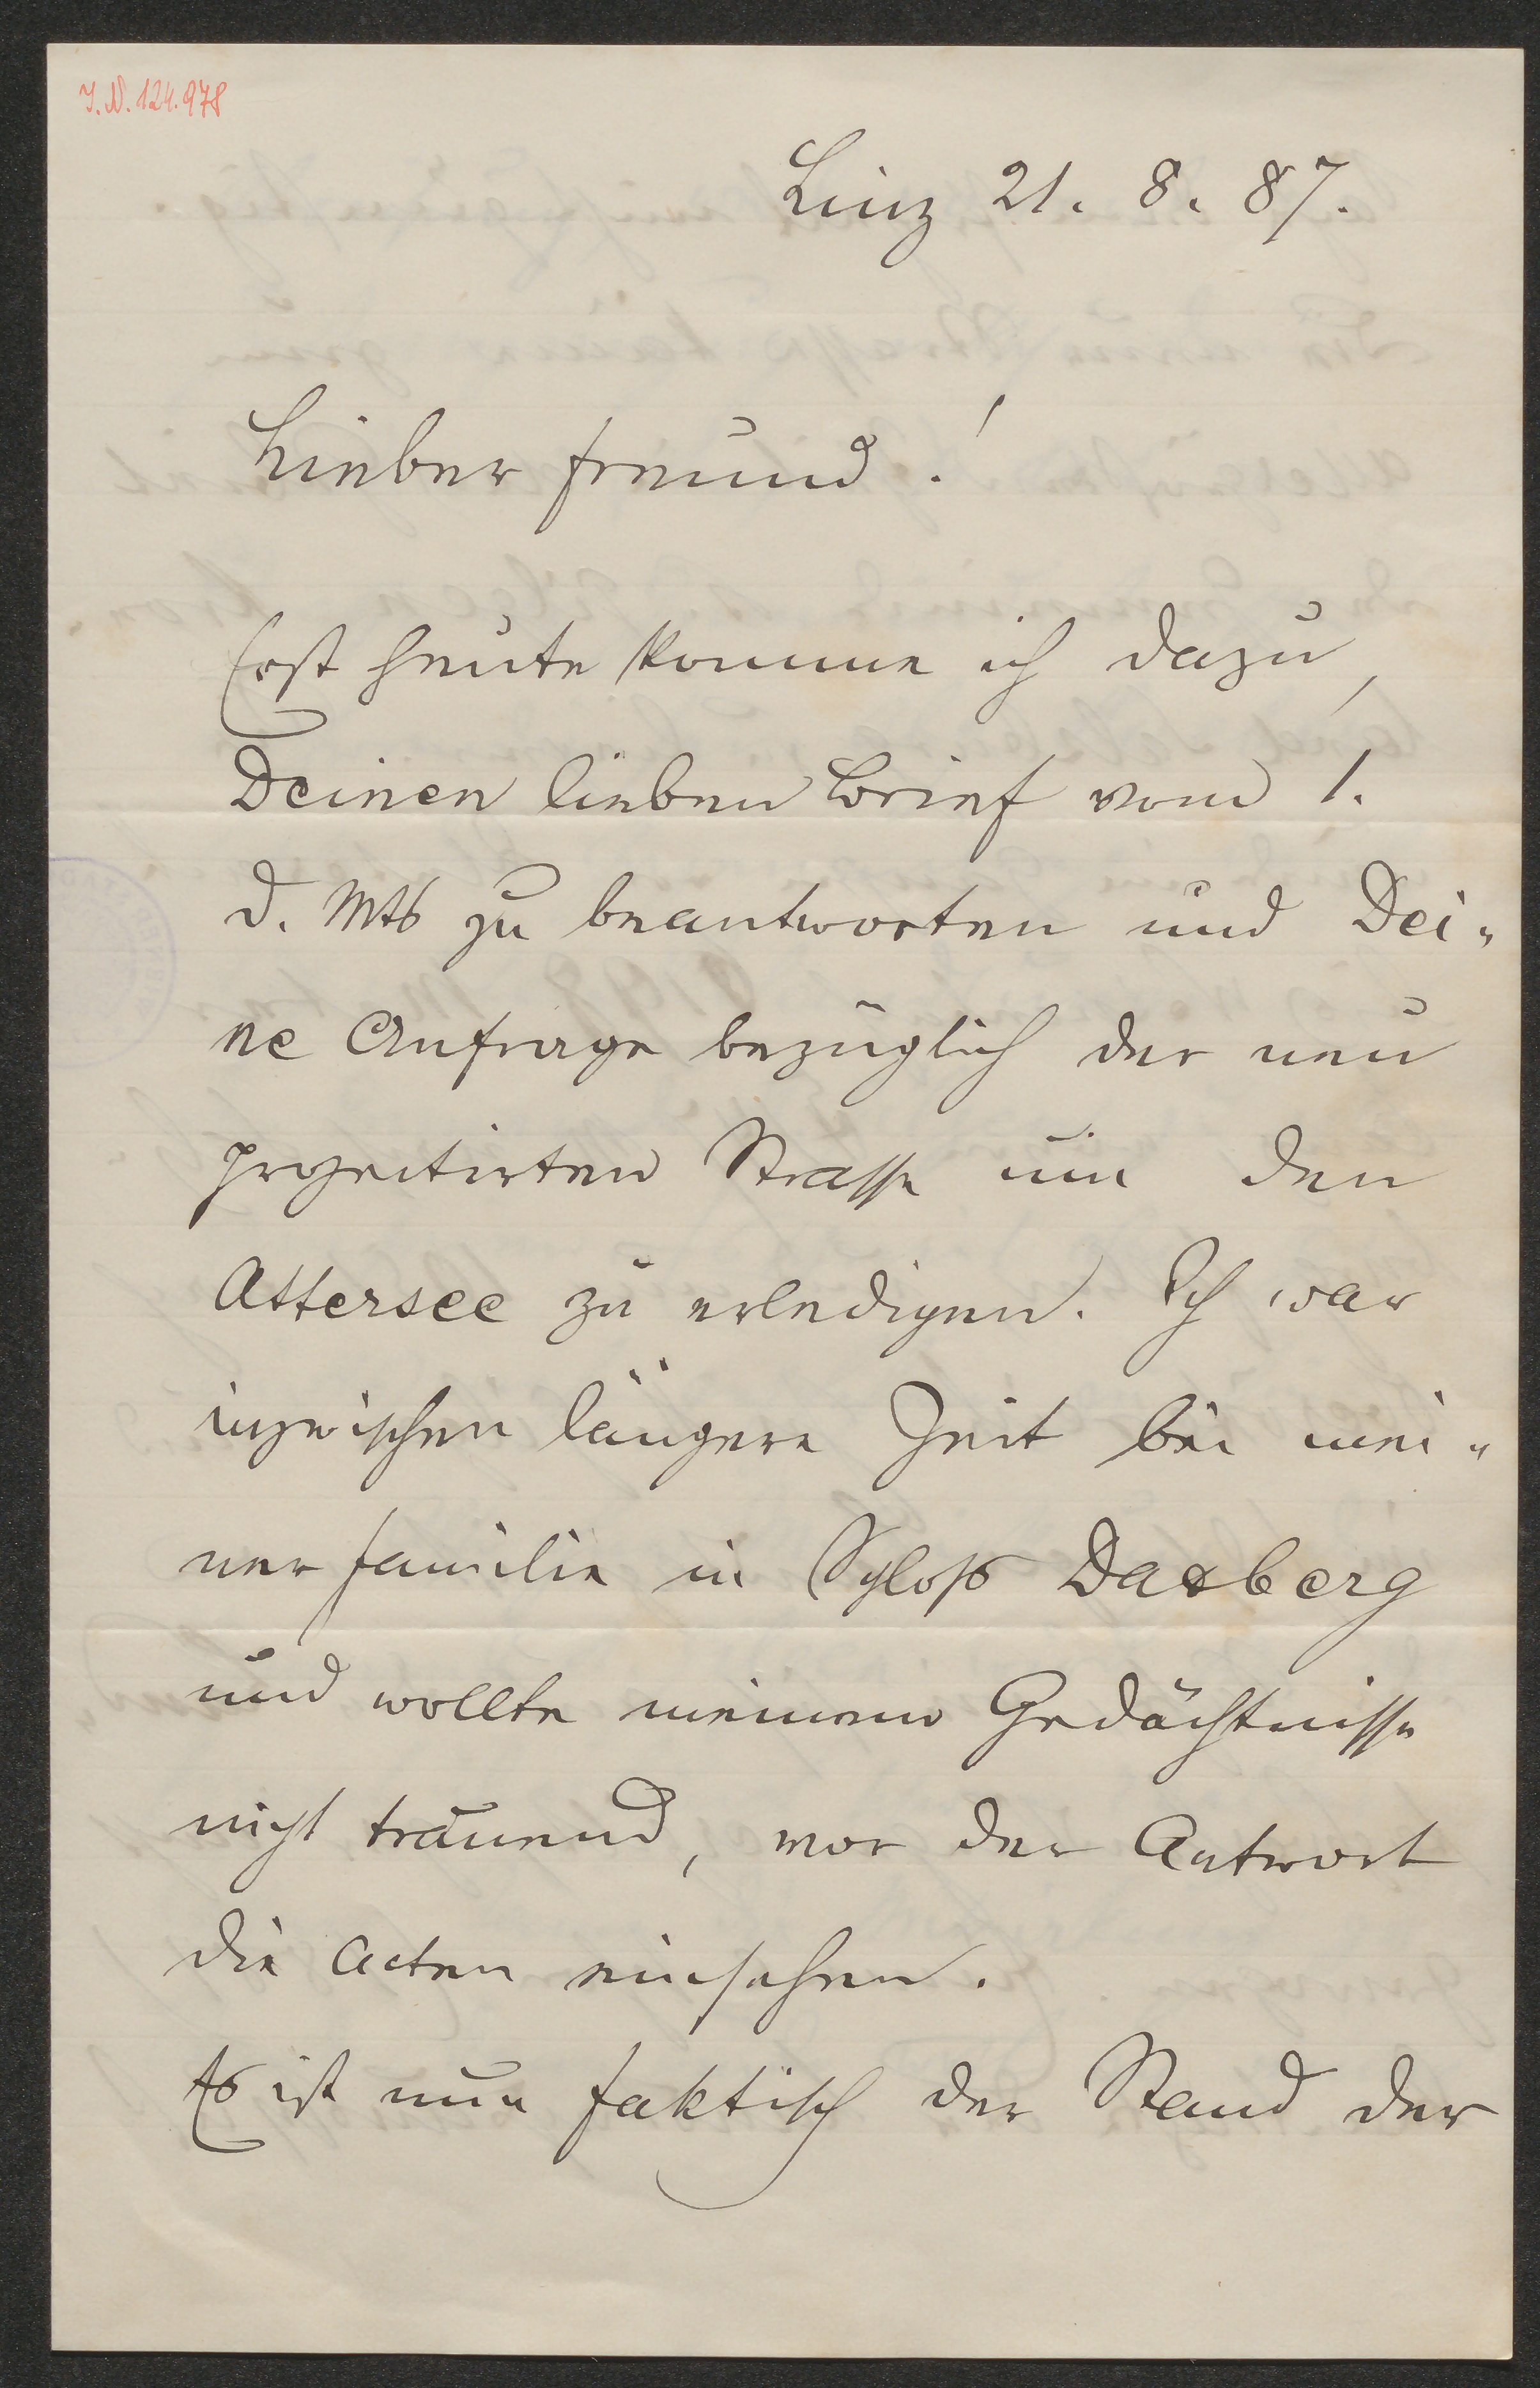 I.N. 124.978
Linz 21. 8. 87.
Lieber Freund!
Erst heute komme ich dazu,
Deinen lieben Brief vom 1.
d. Mts zu beantworten und Dei-
ne Anfrage bezüglich der neu
projectirten Strasse um den
Attersee zu erledigen. Ich war
inzwischen längere Zeit bei mei-
ner Familie in Schloß Daxberg
und wollte meinem Gedächtnisse
nicht trauend, vor der Antwort
die Acten einsehen.
Es ist nun faktisch der Stand der